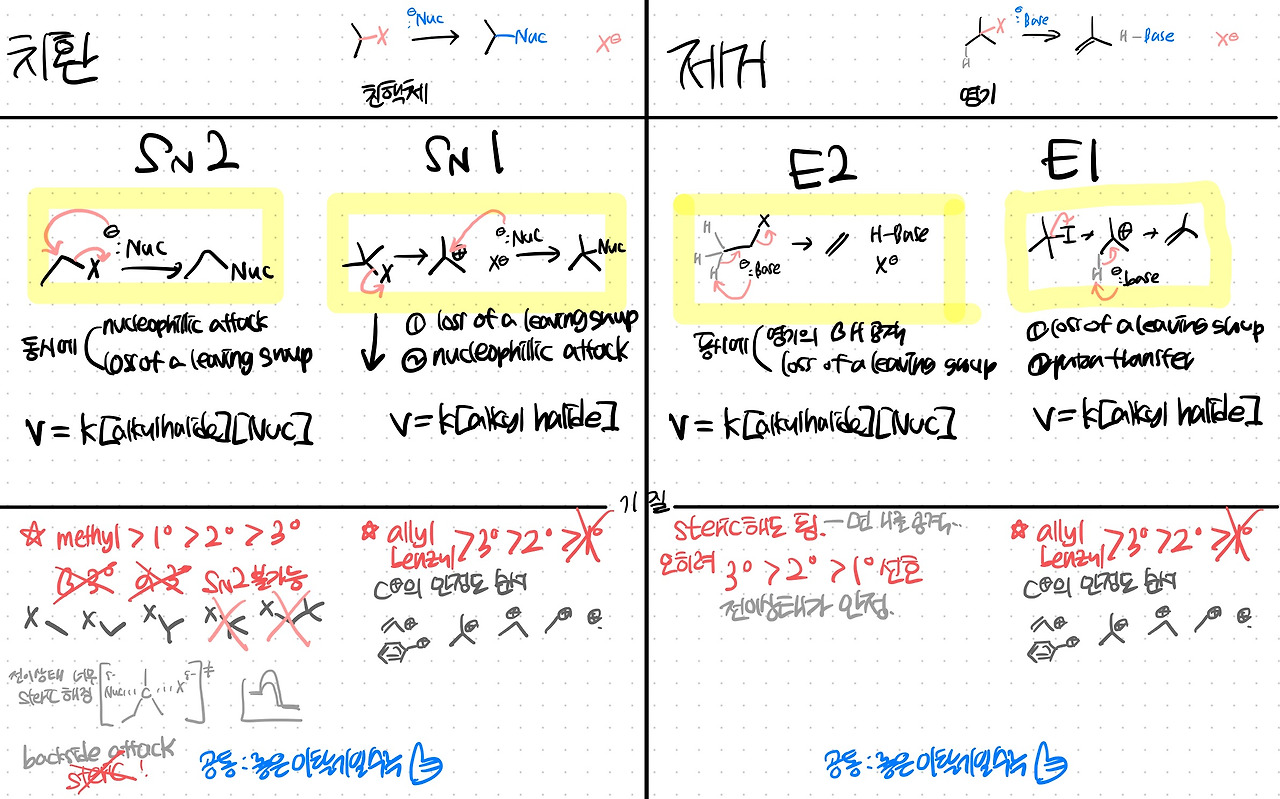 치환
X
⊖
:Nuc
Nuc
X⊖
친핵체
제거
X
H
⊖
:Base
H-Base
X⊖
염기
SN2
X
⊖
:Nuc
Nuc
동시에
nucleophillic attack
loss of a leaving group
V = k[alkylhalide][Nuc]
SN1
X
⊕
⊖
:Nuc
X⊖
Nuc
① loss of a leaving group
② nucleophillic attack
V = k[alkyl halide]
E2
H
H
H
X
⊖
:Base
H-Base
X⊖
동시에
염기의 βH 공격
loss of a leaving group
V = k[alkylhalide][Nuc]
E1
I
⊕
H
⊖
:base
① loss of a leaving group
② proton transfer
V = k[alkyl halide]
기질
☆ methyl > 1° > 2° > 3°
SN2 불가능
X X X X X
전이상태 너무
steric 해짐
[Nuc···C···X]‡
δ- δ-
backside attack
steric!
공통: 좋은 이탈기일수록
☆ allyl
benzyl > 3° > 2° > 1°
C⊕의 안정도 순서
⊕ ⊕ ⊕ ⊕ ⊕
⊕
steric해도 됨.
오히려 3° > 2° > 1° 선호
전이상태가 안정.
☆ allyl
benzyl > 3° > 2° > 1°
C⊕의 안정도 순서
⊕ ⊕ ⊕ ⊕ ⊕
⊕
공통: 좋은 이탈기일수록